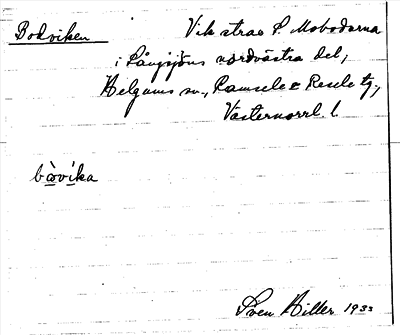 Bodviken Vik strax S. Mobodarna
i Långsjöns nordvästra del,
Helgums sn., Ramsele & Resele tg.,
Västernorrl. l.
bòѡvíka
Sven Hiller 1933